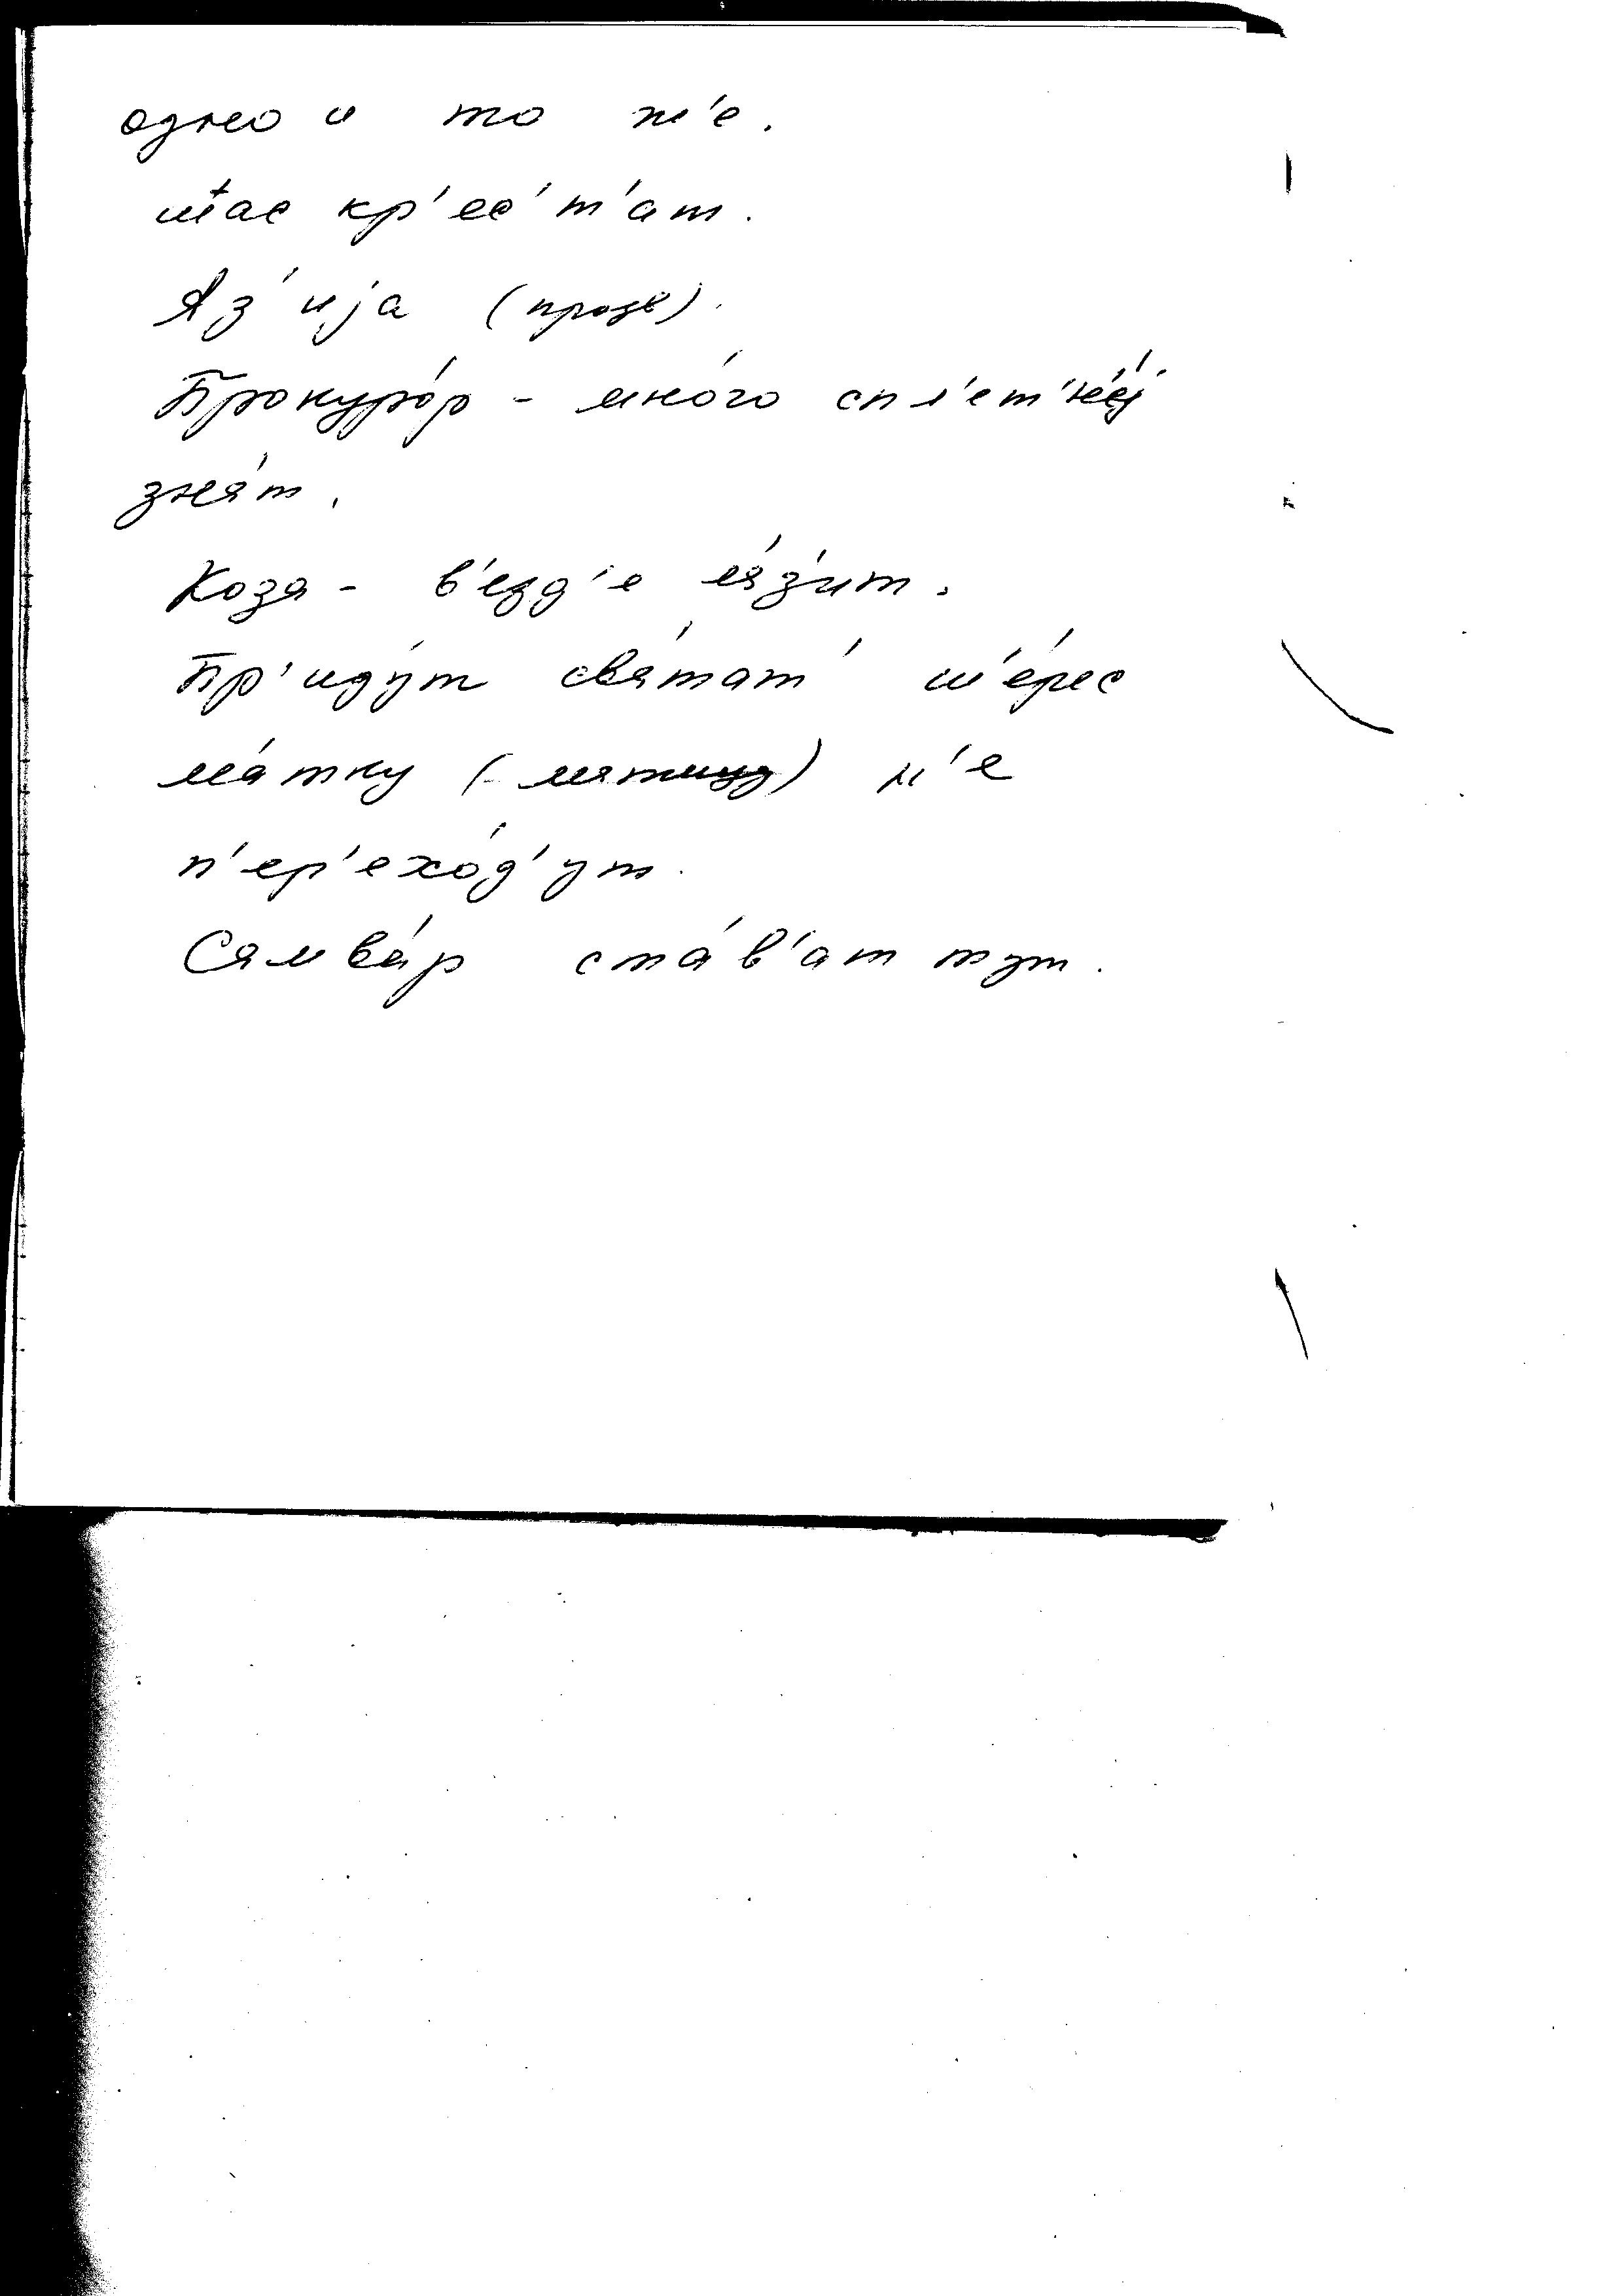 одно и то ж'е.
кр'ес'т'ат.
Аз'иjа (прозв).
Прокуро́р - мно́го спл'ет'не́j
зна́т.
Коза - в'езд'е ла́з'ит.
Пр'иду́т сва́тат' ш'е́рес
ма́тку (матицу) н'е
п'ер'ехо́д'ут.
Самва́р ста́в'ат тут.